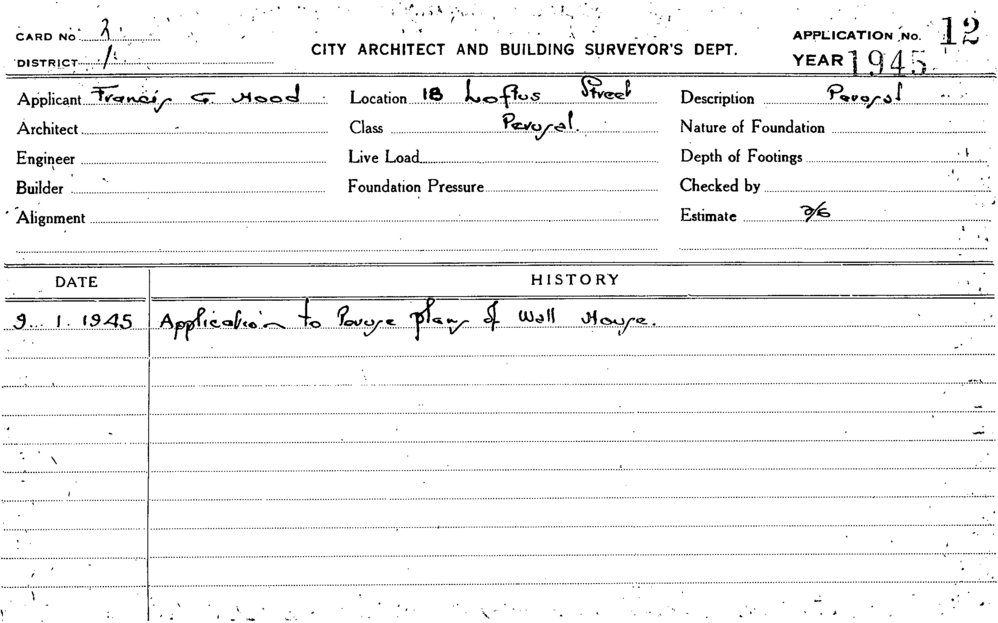 CARD No 3
DISTRICT 1
CITY ARCHITECT AND BUILDING SURVEYOR'S DEPT.
APPLICATION No. 12
YEAR 1945
Applicant Francis G. Hood Location 18 Loftus Street Description Perusal
Architect Class Perusal. Nature of Foundation
Engineer Live Load Depth of Footings
Builder Foundation Pressure Checked by
Alignment Estimate 2/6
DATE HISTORY
9. 1. 1945 Application to Peruse plans of Wool House.